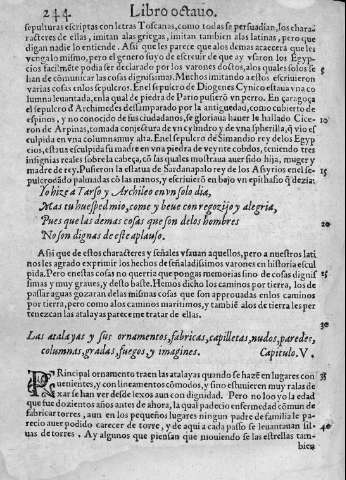 244 Libro octauo.
sepulturas escriptas con letras Toscanas, como todas se persuadian, los chara-
cteres de ellas, imitan alas griegas, imitan tambien alas latinas, pero que
digan nadie lo entiende. Assi que les parece que alos demas acaecera que les
vengalo mismo, pero el genero suyo de escreuir de que ay vsaron los Egyp-
cios facilmēte podia ser declarado por los varones doctos, alos quales solos se
han de cōmunicar las cosas dignissimas. Muchos imitando a estos escriuieron
varias cosas enlos sepulcros. Enel sepulcro de Diogenes Cynico estaua vna co
lumna leuantada, enla qual de piedra de Pario pusierō vn perro. En çaragoça
el sepulcro d̄ Archimedes desamparado por la antiguedad, como cubierto de
espinos, y no conocido de sus ciudadanos, se gloriaua hauer le hallado Cice- 10
ron de Arpinas, tomada conjectura de vn cylindro y de vna spherilla, q̄ vio es
culpida en vna columna muy alta. Enel sepulcro de Simandio rey delos Egyp
cios, estaua esculpida su madre en vna piedra de veynte cobdos, teniendo tres
insignias reales sobre la cabeça, cō las quales mostraua auer sido hija, muger y
madre de rey. Pusieron la estatua de Sardanapalo rey de los Assyrios enel se- 15
pulcro cōmo palmadas cō las manos, y escriuierō en baxo vn epithafio q̄ dezia:
Yo hize a Tarso y Archileo en vn solo dia,
Mas tu huesped mio, come y beue con regozijo y alegria,
Pues que las demas cosas que son delos hombres
No son dignas de este aplauso. 20
Assi que de estos characteres y señales vsauan aquellos, pero a nuestros lati
nos les agrado exprimir los hechos de señaladissimos varones en historia escul
pida. Pero en estas cosas no querria que pongas memorias sino de cosas dignis
simas y muy graues, y desto baste. Hemos dicho los caminos por tierra, los de 25
passar aguas gozaran delas mismas cosas que son approuadas enlos caminos
por tierra, pero como alos caminos maritimos, y tambiē alos de tierra les per
tenezcan las atalayas parece me tratar de ellas.
30
Las atalayas y sus ornamentos, fabricas, capilletas, nudos, paredes,
columnas, gradas, fuegos, y imagines. Capitulo. V.
PRincipal ornamento traen las atalayas quando se hazē en lugares con 35
uenientes, y con lineamentos cōmodos, y si no estuuieren muy ralas de
xar se han ver desde lexos aun con dignidad. Pero no loo yo la edad
que fue dozientos años antes de ahora, la qual padecio enfermedad cōmun de
fabricar torres, aun en los pequeños lugares ningun padre de familia le pa-
recio auer podido carecer de torre, y de aqui a cada passo se leuantauan sil- 40
uas de torres. Ay algunos que piensan que mouiendo se las estrellas tam-
bien